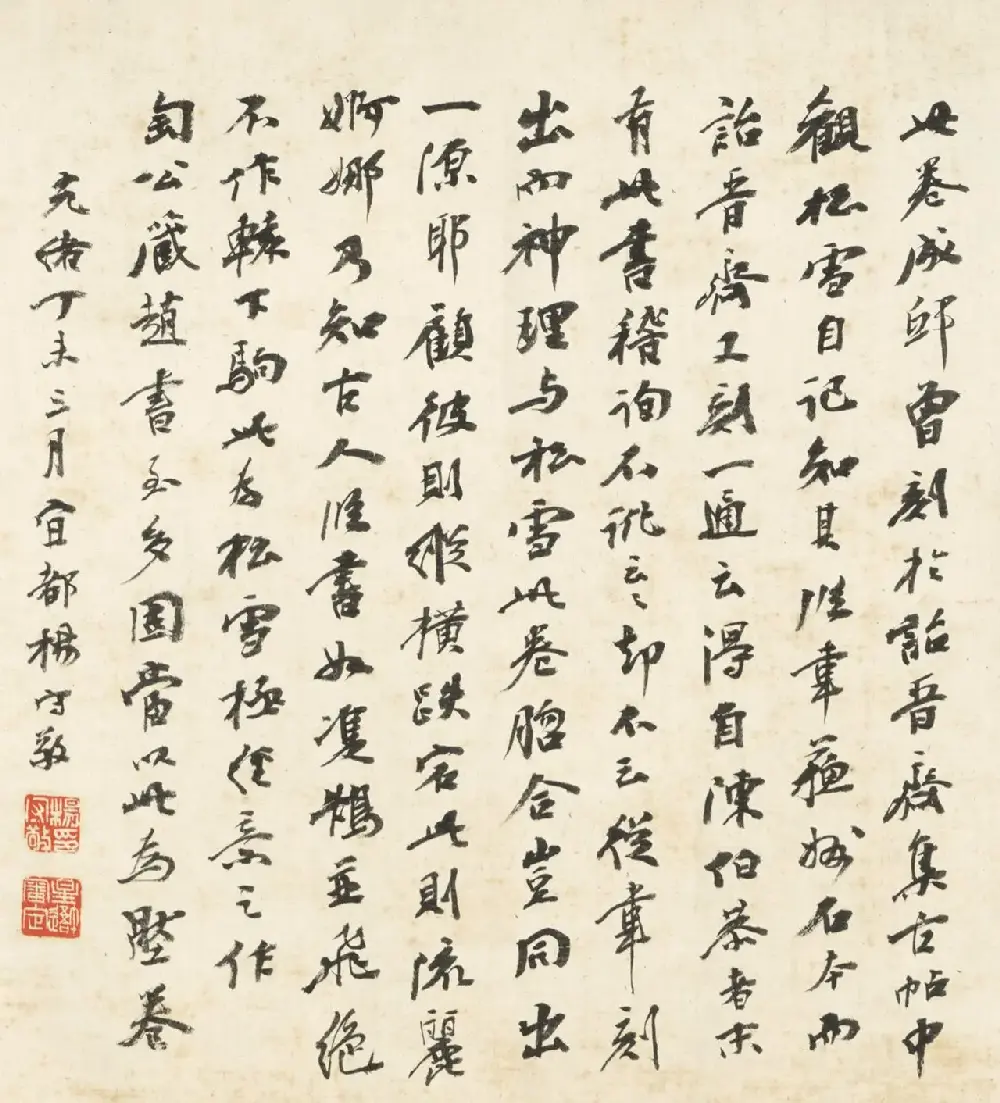 此卷成邸曾刻於詒晉齋集古帖中
觀松雪自記知其臨韋蘇州石本而
詒晉齋又刻一通云得自陳伯恭者末
有此書稽詢不訛云〻却不云從韋刻
出而神理与松雪此卷脗合豈同出
一源耶顧彼則縱橫跌宕此則流麗
婀娜乃知古人臨書如雙鵠並飛絕
不作轅下駒此為松雪極經意之作
匋公藏趙書至多固當以此為壓卷
光緒丁未三月宜都楊守敬
楊守敬印